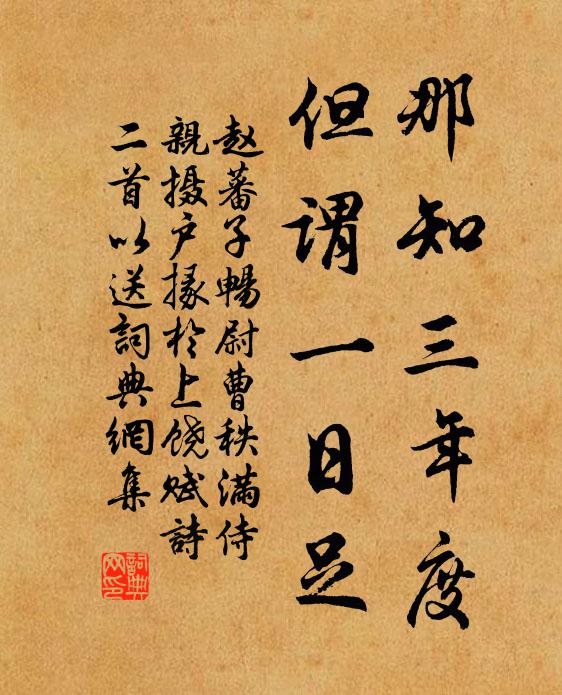 那知三年度
但谓一日足
赵蕃子暢尉曹秩滿侍
親摄户掾於上饶赋詩
二首以送詞典網集
詞典网印